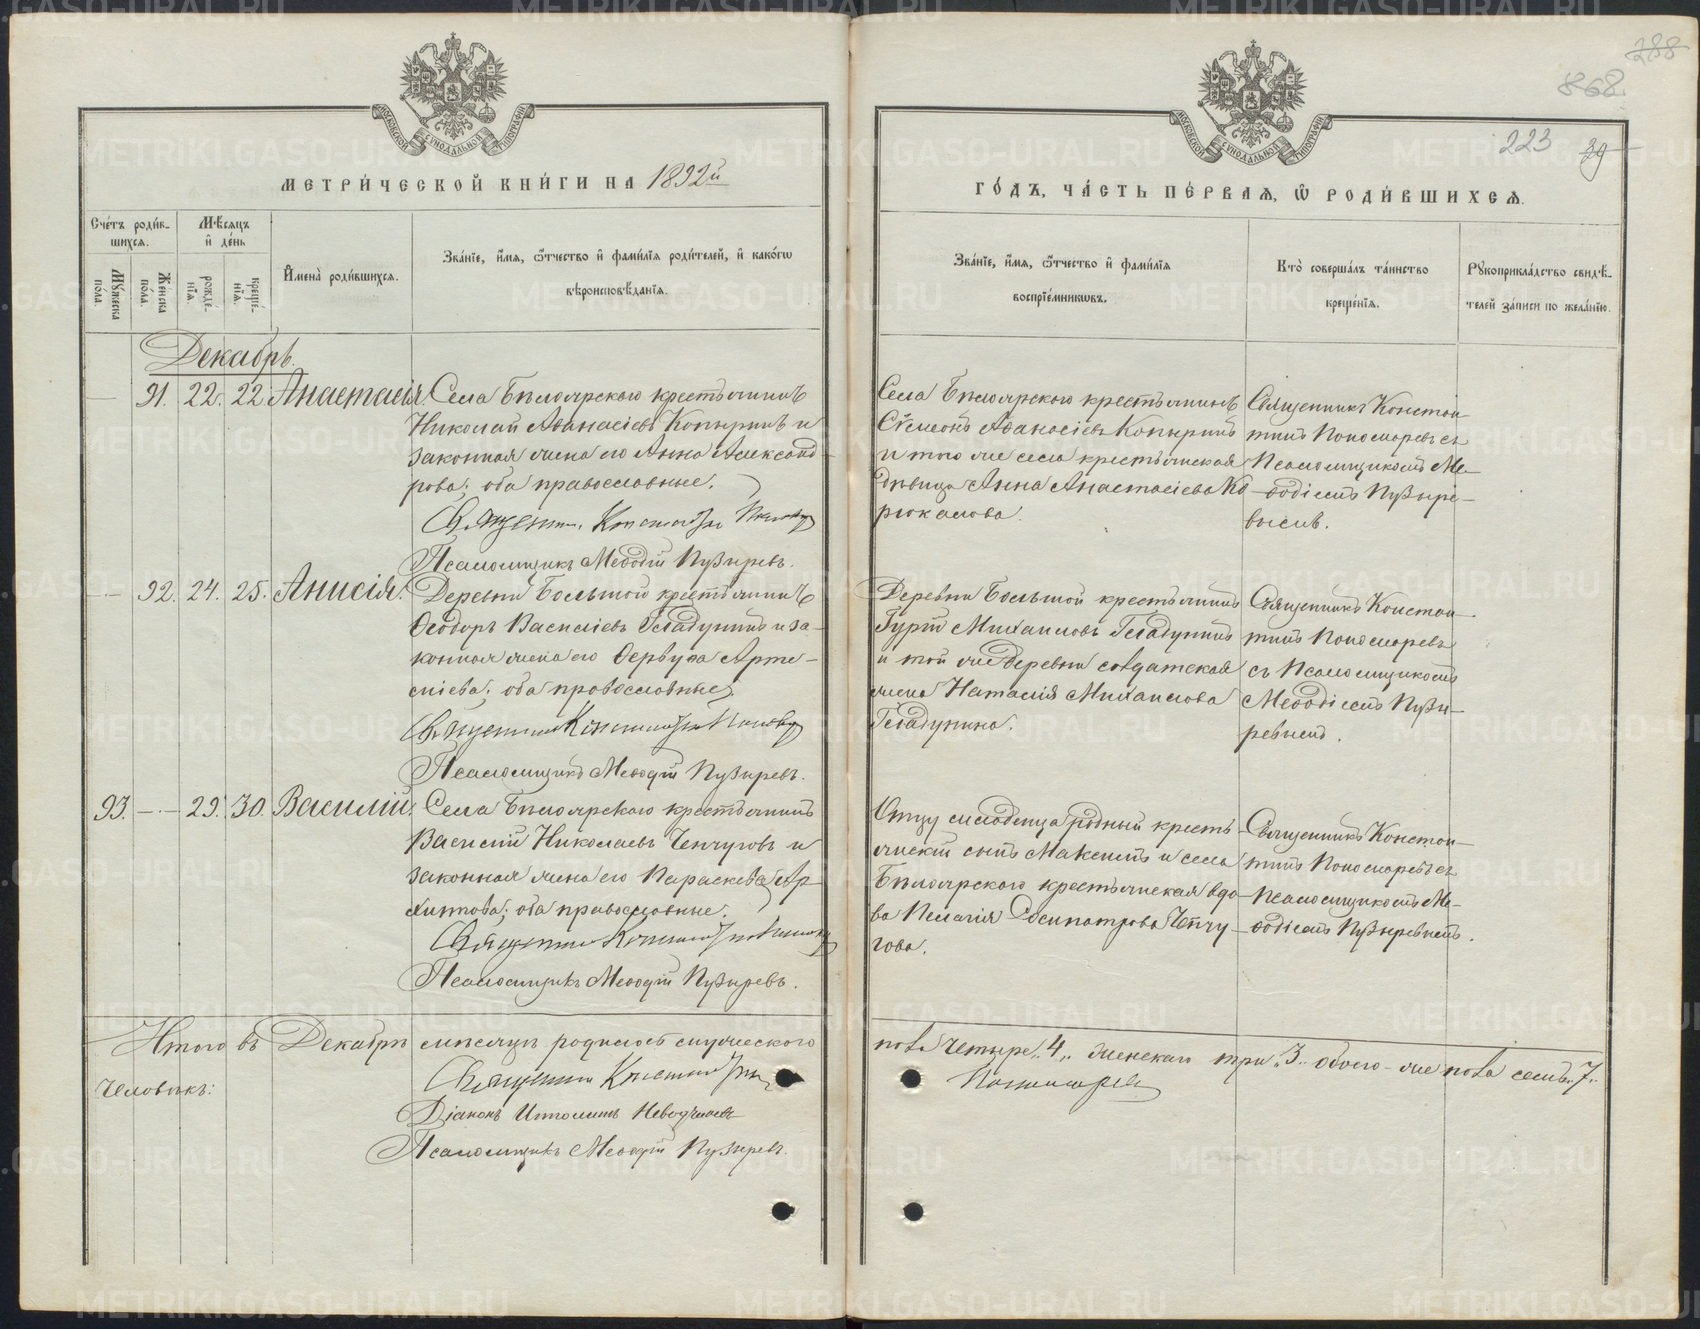 МЕТРИ́ЧЕСКОЙ КНИ́ГИ НА 1892й
Сче́тъ роди́в-
шихся.
Мѣ́сяцъ
и̂ де́нь
Мꙋ́жеска
по́ла.
Же́нска
по́ла.
рожде́-
нїѧ.
креще́-
нїѧ.
И̂мена̀ роди́вшихсѧ.
Зва́нїе, и̂́мѧ, ѿ́чество и̂ фами́лїѧ роди́телей, и̂ како́гѡ
вѣроисповѣ́данїѧ.
Декабрь.
— 91. 22. 22. Анастасія. Села Бѣлоярскаго крестьянинъ
Николай Аѳанасіевъ Копыринъ и
законная жена его Анна Александ-
рова; оба православные.
Священникъ Константинъ Пономаревъ
Псаломщикъ Меѳодій Пузыревъ.
— 92. 24. 25. Анисія. Деревни Большой крестьянинъ
Ѳеодоръ Василіевъ Гладунинъ и за-
конная жена его Ѳервуѳа Арте-
міева; оба православные.
Священникъ Константинъ Пономаревъ
Псаломщикъ Меѳодій Пузыревъ.
93. — 29. 30. Василій. Села Бѣлоярскаго крестьянинъ
Василій Николаевъ Чепчуговъ и
законная жена его Параскева Ар-
хипова; оба православные.
Священникъ Константинъ Пономаревъ
Псаломщикъ Меѳодій Пузыревъ.
Итого въ Декабрѣ мѣсяцѣ родилось мужескаго
Священникъ Константинъ
Человѣкъ:
Діаконъ Ипполитъ
Псаломщикъ Меѳодій Пузыревъ.
288
868
223 39
ГО́ДЪ, ЧА́СТЬ ПЕ́РВАѦ, Ѡ҆ РОДИ́ВШИХСѦ.
Зва́нїе, и̂́мѧ, ѿ́чество и̂ фами́лїѧ
воспрїе́мникѡвъ.
Кто̀ соверша́лъ та́инство
креще́нїѧ.
Рꙋкоприкла́дство свидѣ́-
телей за́писи по жела́нїю.
Села Бѣлоярскаго крестьянинъ
Сѷмеонъ Аѳанасіевъ Копыринъ
и того же села крестьянская
дѣвица Анна Анастасіева Ко-
рюкалова.
Священникъ Констан-
тинъ Пономаревъ съ
Псаломщикомъ Ме-
ѳодіемъ Пузыре-
вымъ.
Деревни Большой крестьянинъ
Гурій Михаиловъ Гладунинъ
и той же деревни солдатская
жена Наталія Михаилова
Гладунина.
Священникъ Констан-
тинъ Пономаревъ
съ Псаломщикомъ
Меѳодіемъ Пузы-
ревымъ.
Отцу младенца родный кресть-
янскій сынъ Максимъ и села
Бѣлоярскаго крестьянская вдо-
ва Пелагія Сосипатрова Чепчу-
гова.
Священникъ Констан-
тинъ Пономаревъ съ
Псаломщикомъ Ме-
ѳодіемъ Пузыревымъ.
пола четыре „4„ женскаго три „3„ обоего же пола семь „7„
Пономаревъ